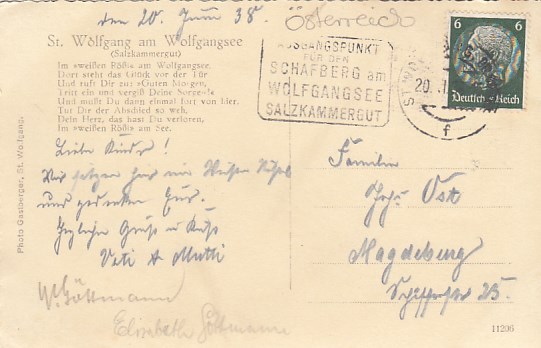 den 20. Juni 38.
Österreich
St. Wolfgang am Wolfgangsee
(Salzkammergut)
Im »weißen Rößl« am Wolfgangsee,
Dort steht das Glück vor der Tür
Und ruft Dir zu: »Guten Morgen,
Tritt ein und vergiß Deine Sorgen!«
Und mußt Du dann einmal fort von hier,
Tut Dir der Abschied so weh,
Dein Herz, das hast Du verloren,
Im »weißen Rößl« am See.
AUSGANGSPUNKT
FÜR DEN
SCHAFBERG am
WOLFGANGSEE
SALZKAMMERGUT
6 6
Deutsches Reich
20.
f
Liebe Kinder!
Wir sitzen hier im Weißen Rössl
und gedenken Eur.
Herzliche Grüße u Küße
Vati & Mutti
W. Göttmann
Elisabeth Göttmann
Familie
Ost
Magdeburg
25.
Photo Gastberger, St. Wolfgang.
11206